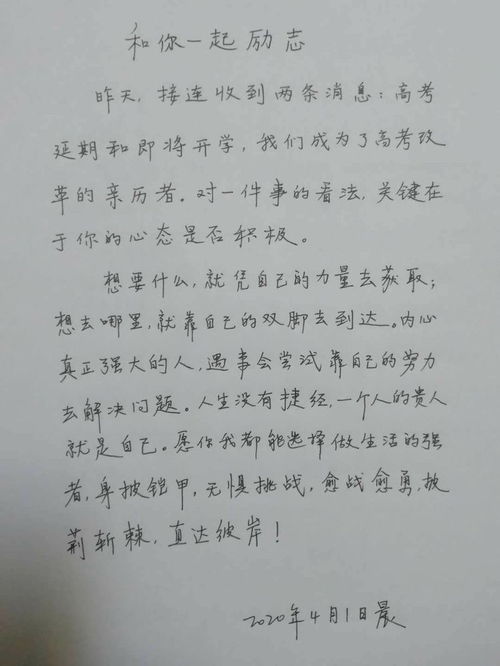 和你一起励志
昨天，接连收到两条消息：高考
延期和即将开学，我们成为了高考改
革的亲历者。对一件事的看法，关键在
于你的心态是否积极。
想要什么，就凭自己的力量去获取；
想去哪里，就靠自己的双脚去到达。内心
真正强大的人，遇事会尝试靠自己的努力
去解决问题。人生没有捷径，一个人的贵人
就是自己。愿你我都能选择做生活的强
者，身披铠甲，无惧挑战，愈战愈勇，披
荆斩棘，直达彼岸！
2020年4月1日晨